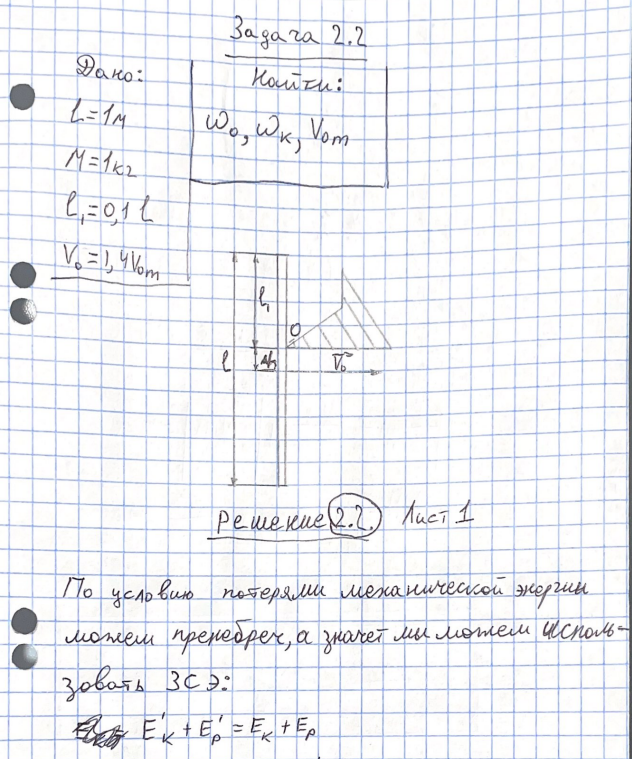 Задача 2.2
Дано:
Найти:
L=1м
ω₀, ωк, V₀m
M=1кг
l₁=0,1 l
V₀=1,4V₀m
l₁
O
l
V₀
Решение 2.2. Лист 1
По условию потерями механической энергии
можем пренебреч, а значет мы можем исполь-
зовать ЗСЭ:
E'к + E'р = Eк + Eр